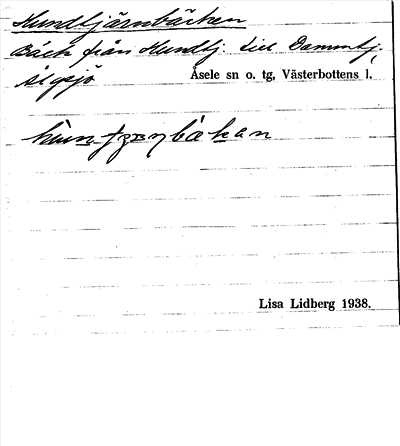 Hundtjärnbäcken
Bäck från Hundtj. till Dammtj.,
Älgsjö Åsele sn o. tg, Västerbottens l.
Lisa Lidberg 1938.